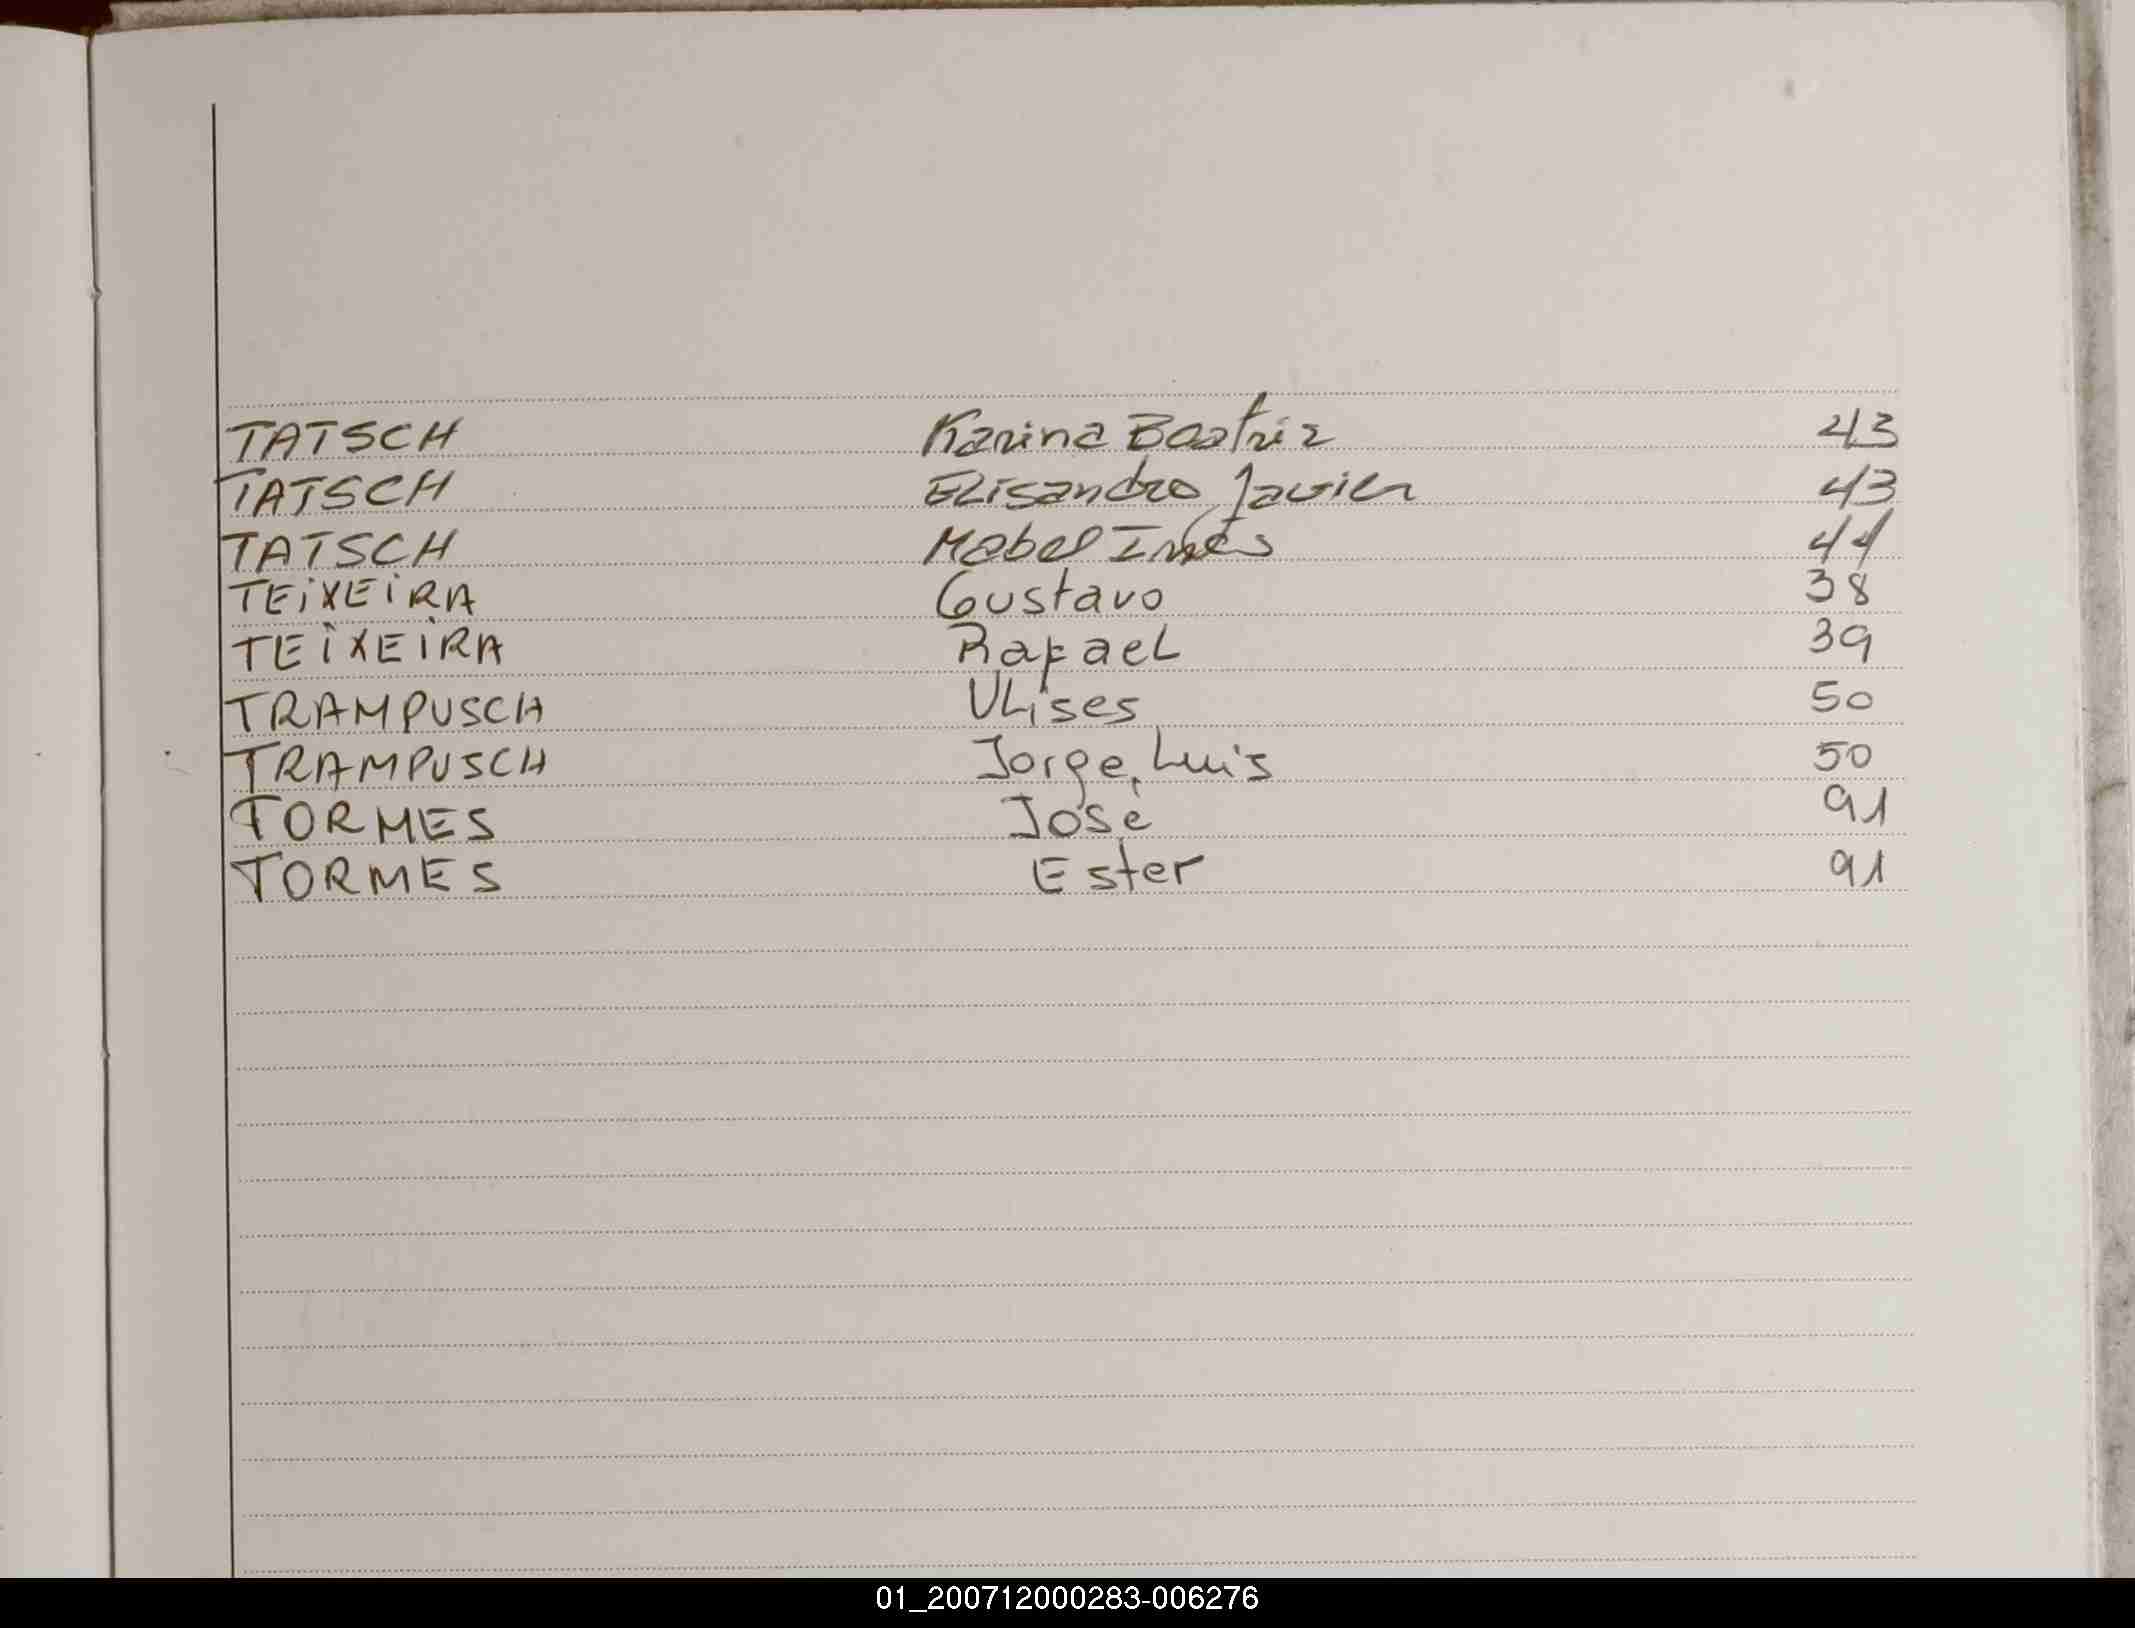 TATSCH Karina Beatriz 43
TATSCH Elisandro Javier 43
TATSCH Mabel Inés 44
TEIXEIRA Gustavo 38
TEIXEIRA Rafael 39
TRAMPUSCH Ulises 50
TRAMPUSCH Jorge Luis 50
TORMES José 91
TORMES Ester 91
01_200712000283-006276